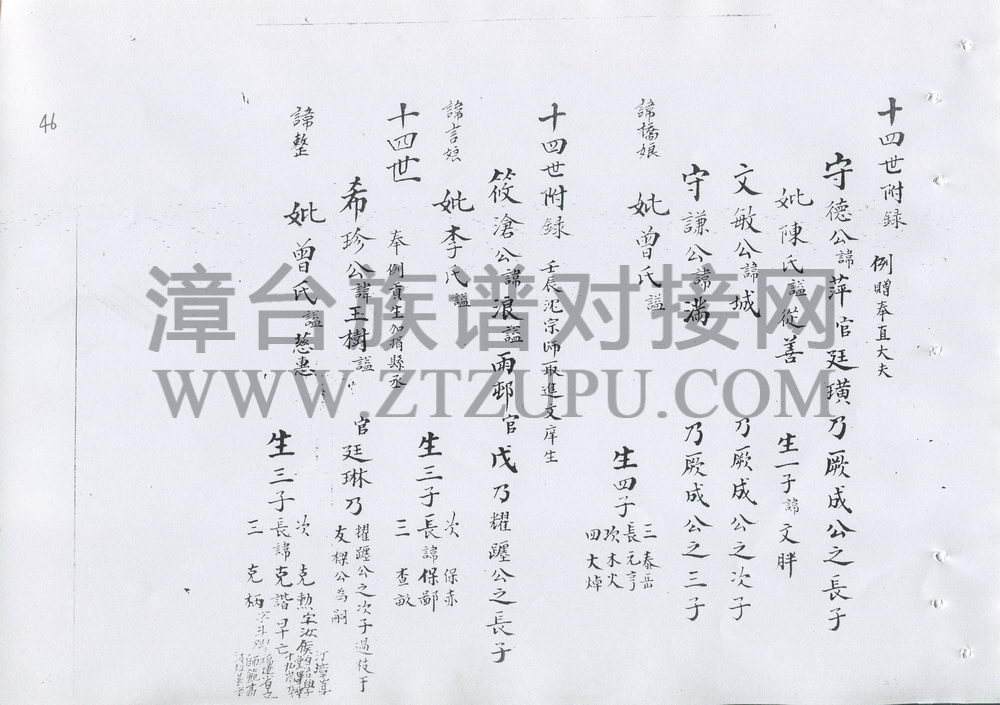 十四世附录
例贈奉直大夫
守德公諱萍官廷璜乃厥成公之長子
妣陳氏謚從善 生一子諱文胖
文敏公諱城 乃厥成公之次子
守謙公諱滿 乃厥成公之三子
諱橋娘 妣曾氏謚 生四子
三泰岳
長元亨
次木火
四大焯
十四世附録 壬辰沈宗师取進文庠生
筱滄公諱浪謚雨邨官戊乃耀躔公之長子
諱言娘 妣李氏謚 生三子
次保赤
長諱保鄙
三查畝
十四世 奉例貢生加捐縣丞
希珍公諱玉樹謚 官廷琳乃
耀躔公之次子過伎于
友樑公為嗣
諱整 妣曾氏謚慈惠 生三子
次克勲字汝侯
長諱克諧早亡
三克柄
46
漳台族谱对接网
WWW.ZTZUPU.COM